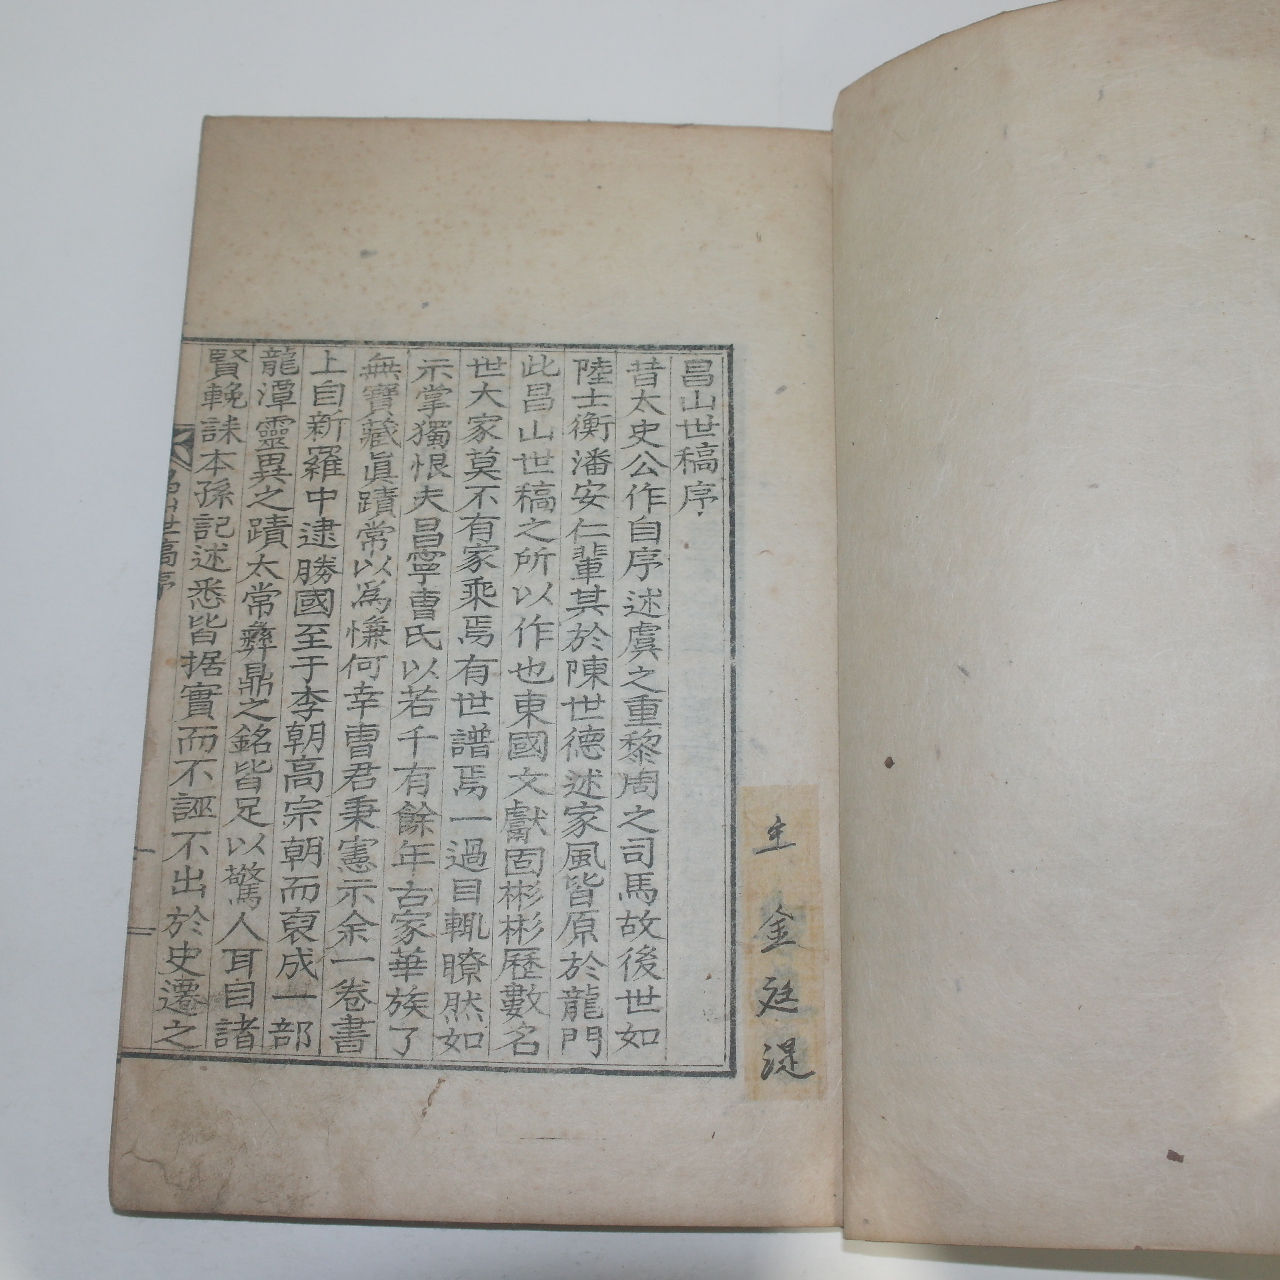 主 金廷湜
昌山世稿序
昔太史公作自序述虞之重黎周之司馬故後世如
陸士衡潘安仁輩其於陳世德述家風皆原於龍門
此昌山世稿之所以作也東國文獻固彬彬歷數名
世大家莫不有家乘焉有世譜焉一過目輒瞭然如
示掌獨恨夫昌寧曺氏以若千有餘年古家華族了
無寶藏眞蹟常以爲慊何幸曺君秉憲示余一卷書
上自新羅中逮勝國至于李朝高宗朝而裒成一部
龍潭靈異之蹟太常彛鼎之銘皆足以驚人耳目諸
賢輓誄本孫記述悉皆据實而不誣不出於史遷之
昌山世稿序